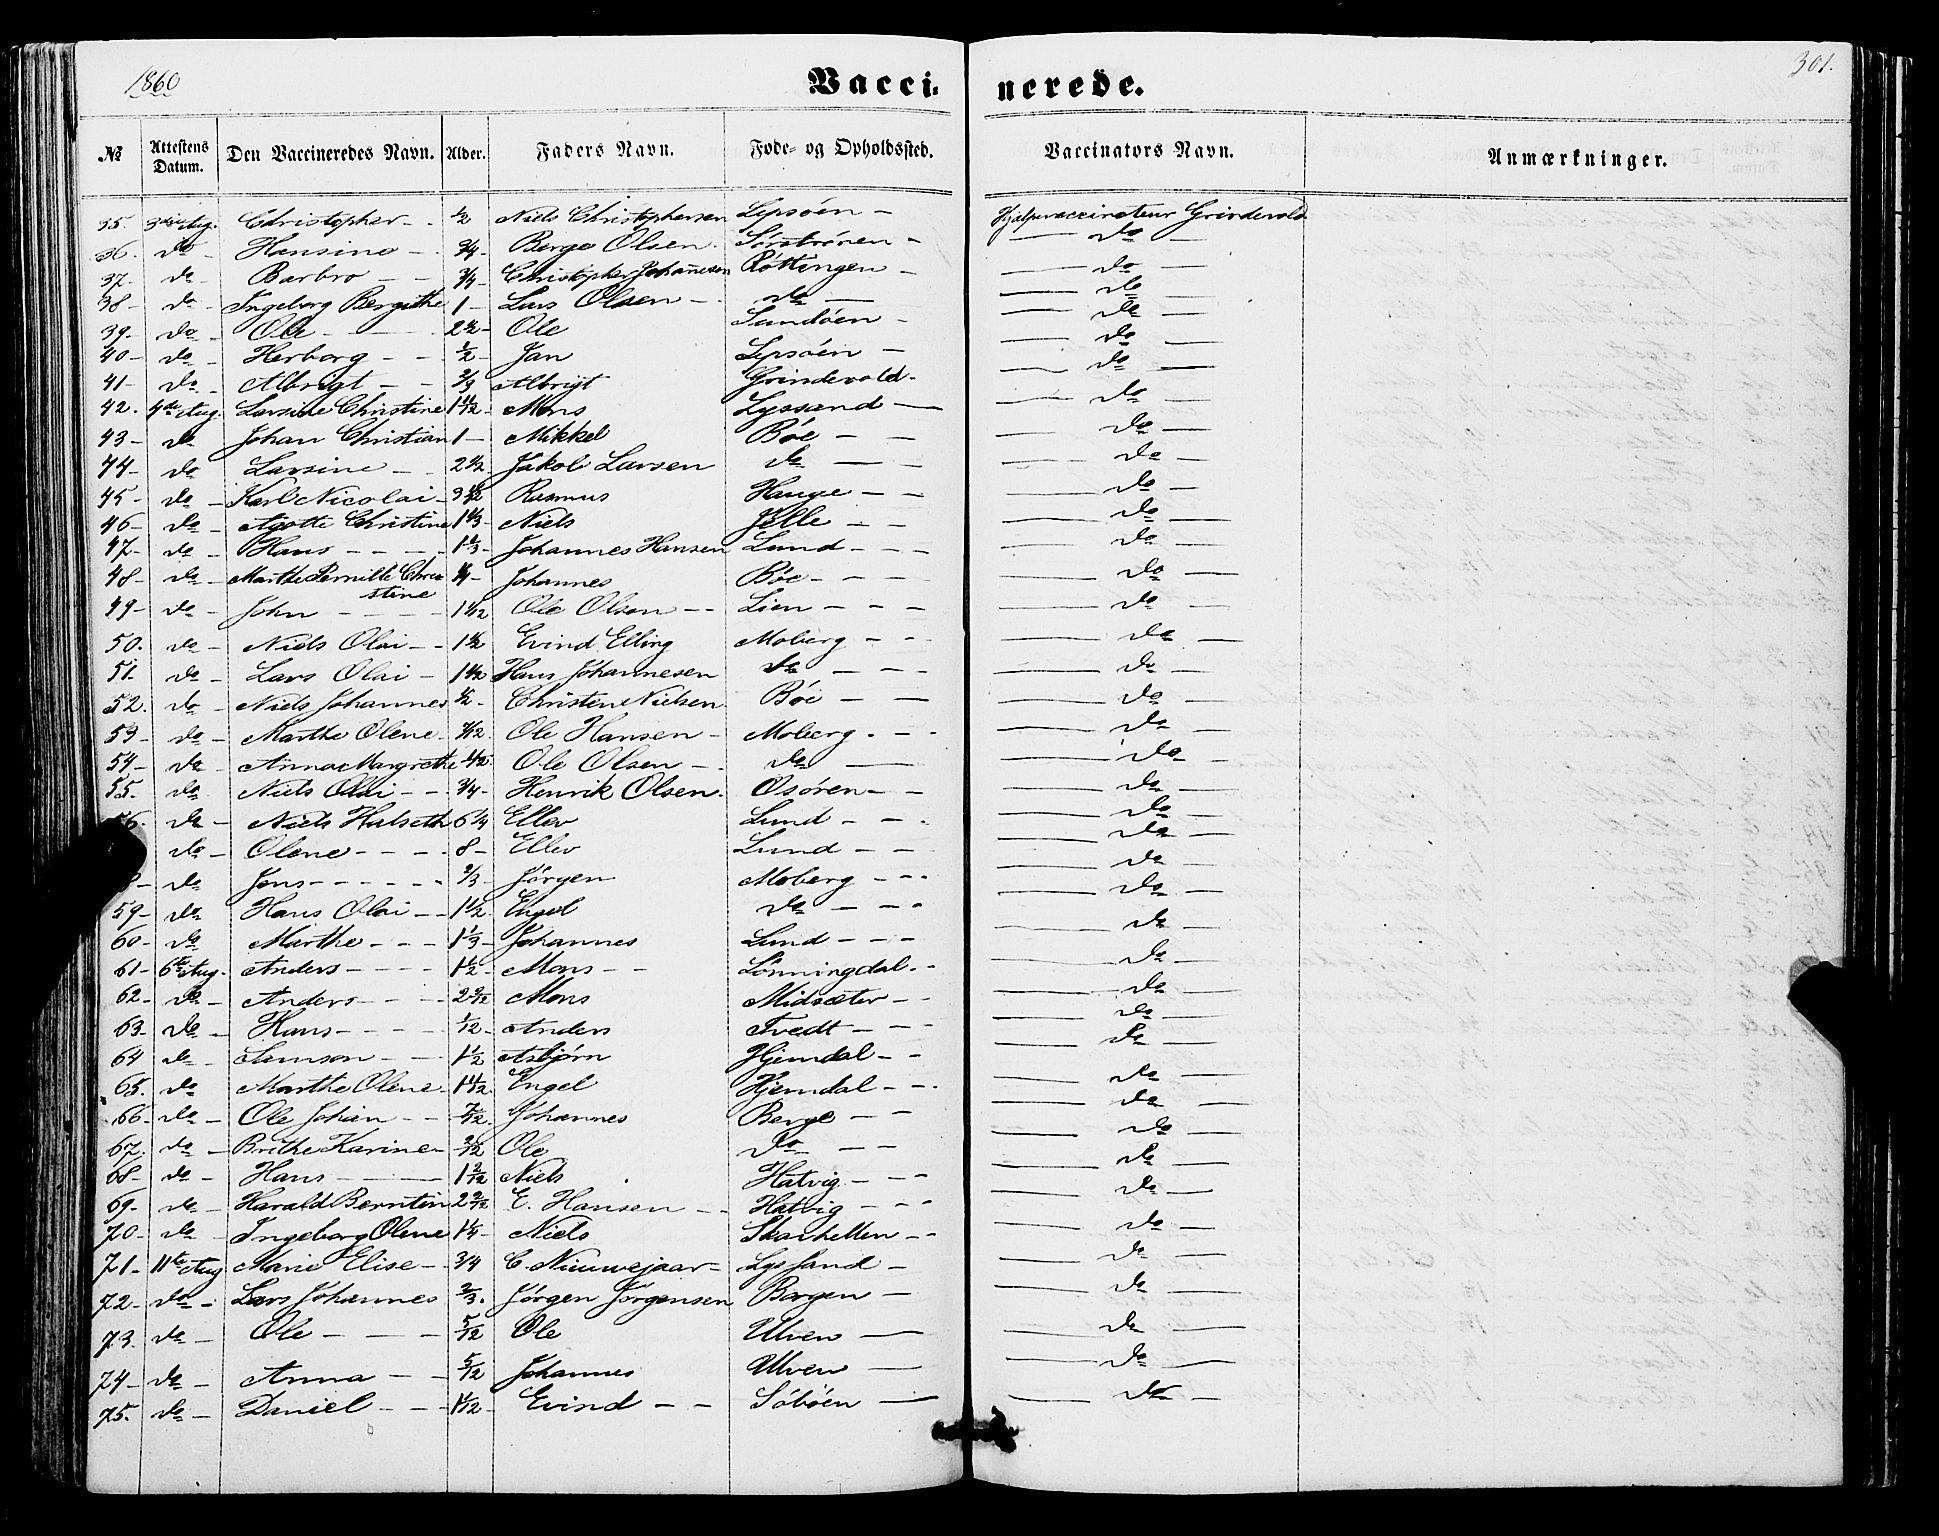 1860 Vaccinerede. 301.
№ Attestens Datum. Den Vaccineredes Navn. Alder. Faders Navn. Føde- og Opholdssted. Vaccinators Navn. Anmærkninger.
35. 3die Aug. Christopher - - 1/2 Niels Christophersen Lepsöen - Hjelpevaccinateur Grindevold
36. do - Hansine - - 3/4 - Berge Olsen. Sörströnen - do -
37. do - Barbro - - 3/4 - Christopher Johannesen Röttingen - do -
38 - do - Ingeborg Bergithe 1 - Lars Olsen - do - do -
39. do - Ole - - Ole Sundöen - do -
40 - do - Herborg - - 1/2 - Jan Lepsöen - do -
41 - do - Albrigt - - Albrigt Grindevold - do -
42. 4de Aug. Larsine Christine Mons Lyssand - do -
43 - do Johan Christian 1 - Mikkel Böe - - do -
44 - do Larsine - - 2 1/2 Jakob Larsen do - - do -
45 - do - Karl Nicolai - Rasmus Hauge - - do -
46 - do - Agotte Christine 1 1/3 - Niels Jelle - - do -
47 - do - Hans - - - 1 1/3 - Johannes Hansen Lund - - - do -
48 - do - Marthe Pernille Chri- Johannes Böe - - - do -
stine
49 - do - John - - - Ole Olsen - - Lien - - - do -
50. do - Niels Olai - - 1 1/2 Evind Elling Moberg - - do -
51. do - Lars Olai - 1 1/2 Hans Johannesen do - - do -
52. do - Niels Johannes 1/2 - Christen Nielsen Böe - - do -
53 - do - Marthe Olene - Ole Hansen - Moberg - - - do -
54 - do - Anna Margrethe Ole Olsen - - do - do -
55. do - Niels Olai - - 3/4 - Henrik Olsen - Osören - - do -
56. do - Niels Halseth 6 1/4 Ellev Lund - - - do -
do - Olene - - - 8 - Ellev Lund - - do -
8 - do Jens - - - - 2/3 - Jörgen Moberg - - - do -
59 - do - Hans Olai - - 1 1/2 Engel do - - - do -
60 - do Marthe - - - 1 1/3 - Johannes Lund - - - do -
61 - 6te Aug. Anders - - - 1 1/2 - Mons - - Lönningdal - - do -
62 - do - Anders - - Mons Midsæter - - do -
63 - do - Hans - - - 1/12 - Anders Tvedt - - - do -
64 do - Samson - - 1 1/2 Asbjörn Hjemdal - - do -
65. do Marthe Olene Engel Hjemdal - - - do -
66 - do - Ole Johan - - 7/12. Johannes Berge - - do -
67. do - Brithe Karine - Ole do - - do -
68 - do - Hans - - 1 2/12 Niels Hatvig - - - do -
69 - do - Harald Berntin 2 2/12 E. Hansen - - Hatvig - - - do -
70 - do - Ingeborg Olene 1 1/4 - Niels Skarhellen - - do -
71 - 11te Aug Marie Elise - 3/4 C. Nieuwejaar - Lys sand - do -
72 - do - Lars Johannes 2/3. Jörgen Jörgensen Borgen - do -
73. do - Ole - - - 5/12 Ole Ulven - do -
74 - do - Anna - - 5/12 Johannes Ulven - do -
75. do - Daniel - - Evind - - Söböen - do -